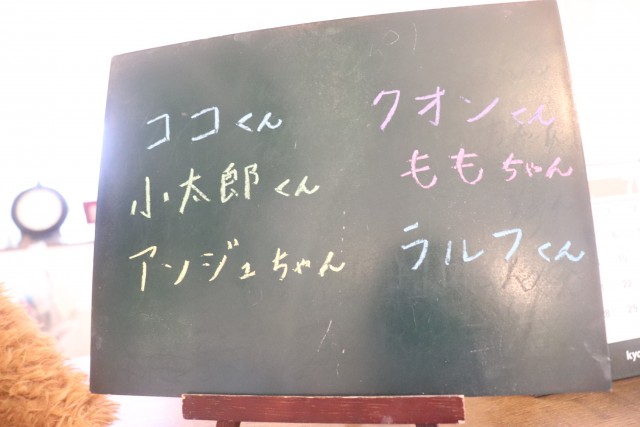 ココくん
小太郎くん
アンジュちゃん
クオンくん
ももちゃん
ラルフくん